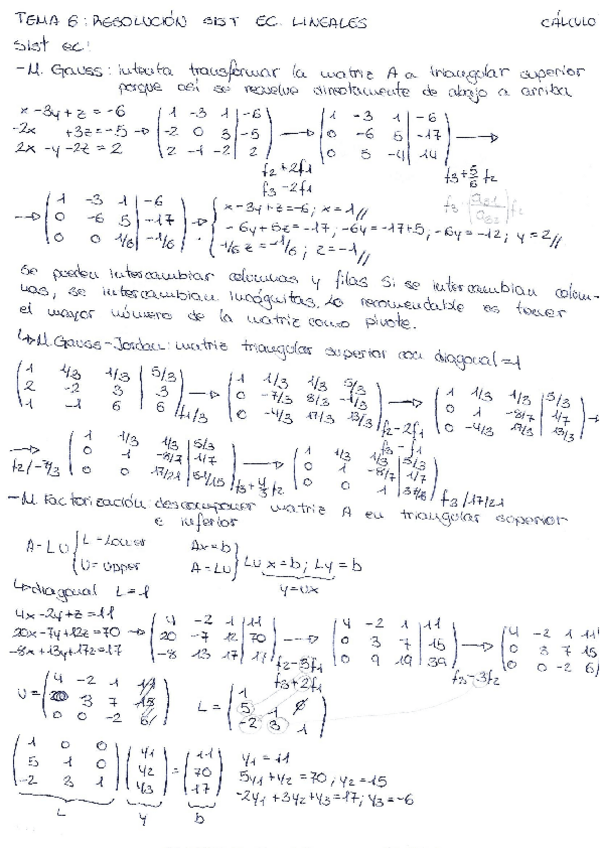 TEMA 6: RESOLUCIÓN SIST EC. LINEALES CÁLCULO
Sist ec:
-M. Gauss: intenta transformar la matriz A a triangular superior
porque así se resuelve directamente de abajo a arriba
x-3y+z=-6
-2x +3z=-5 → (1 -3 1 | -6; -2 0 3 | -5; 2 -1 -2 | 2) → (1 -3 1 | -6; 0 -6 5 | -17; 0 5 -4 | 14) →
2x-y-2z=2
f2+2f1
f3-2f1
f3+5/6 f2
→ (1 -3 1 | -6; 0 -6 5 | -17; 0 0 1/6 | -1/6) · { x-3y+z=-6; x=1//
-6y+5z=-17; -6y=-17+5; -6y=-12; y=2//
1/6 z=-1/6; z=-1//
Se pueden intercambiar columnas y filas si se intercambian colum-
nas, se intercambian incógnitas. Lo recomendable es tener
el mayor número de la matriz como pivote.
↳M. Gauss-Jordan: matriz triangular superior con diagonal=1
(1 1/3 1/3 | 5/3; 2 -2 3 | 3; 1 -1 6 | 6) f1/3 → (1 1/3 1/3 | 5/3; 0 -7/3 8/3 | -1/3; 0 -4/3 17/3 | 13/3) f2-2f1 f3-f1 → (1 1/3 1/3 | 5/3; 0 1 -8/7 | 1/7; 0 -4/3 17/3 | 13/3) →
→ f2/-7/3 (1 1/3 1/3 | 5/3; 0 1 -8/7 | 1/7; 0 0 17/21 |) f3+4/3 f2 → (1 1/3 1/3 | 5/3; 0 1 -8/7 | 1/7; 0 0 1 |) f3/17/21
-M. Factorización: descomponer matriz A en triangular superior
e inferior
A=LU { L=Lower Ax=b } LUx=b; Ly=b
U=Upper A=LU y=Ux
↳diagonal L=1
4x-2y+z=11
20x-7y+12z=70 → (4 -2 1 | 11; 20 -7 12 | 70; -8 13 17 | 17) → (4 -2 1 | 11; 0 3 7 | 15; 0 9 19 | 39) → (4 -2 1 11; 0 3 7 15; 0 0 -2 6)
-8x+13y+17z=17
f2-5f1
f3+2f1
f3-3f2
U = (4 -2 1 11; 0 3 7 15; 0 0 -2 6) L = (1; 5 1 0; -2 3 1)
(1 0 0; 5 1 0; -2 3 1) (y1; y2; y3) = (11; 70; 17) y1=11
5y1+y2=70; y2=15
-2y1+3y2+y3=17; y3=-6
L y b